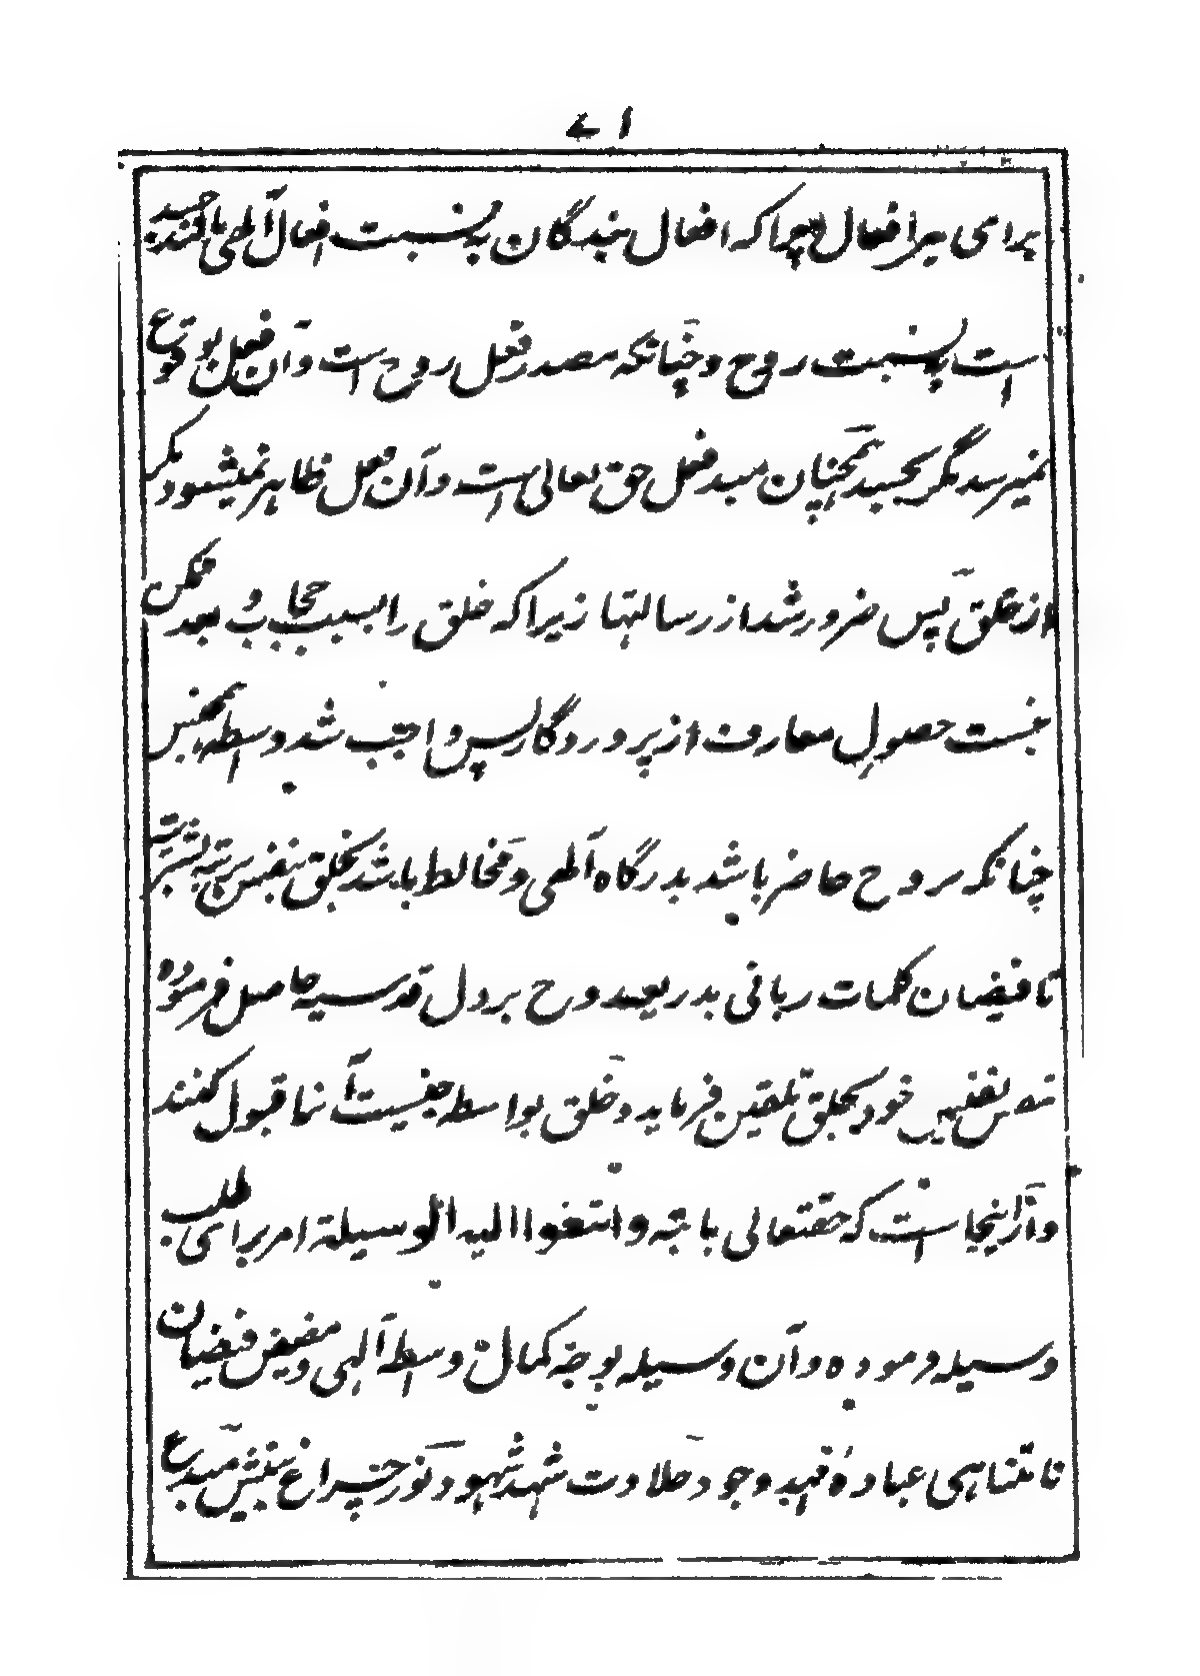 ۷۱
برای هر افعال چرا که افعال بندگان به نسبت افعال الهی مانند جسد
است به نسبت روح و چنانکه مصدر فعل روح است و آن فعل بوقوع
نمیرسد مگر بجسد همچنان مبدء فعل حق تعالی است و آن فعل ظاهر نمیشود مگر
از خلق پس ضرور شد از رسالتها زیرا که خلق را بسبب حجاب و بعد ممکن
نیست حصول معارف از پروردگار پس واجب شد وسطه همجنس
چنانکه روح حاضر باشد بدرگاه الهی و مخالط باشد بخلق بنفس مرتبه بشریت
تا فیضان کلمات ربانی بذریعه روح بر دل قدسیه حاصل فرموده
خود بخلق تلقین فرماید و خلق بواسطه جنسیت آنها قبول کنند
و از اینجا است که حقتعالی بآیة وابتغوا الیه الوسیلة امر برای طلب
وسیله فرموده و آن وسیله بوجه کمال وسطه الهی و مفیض فیضان
نامتناهی وجود حلاوت شهد شهود نور چراغ بینش مبدع